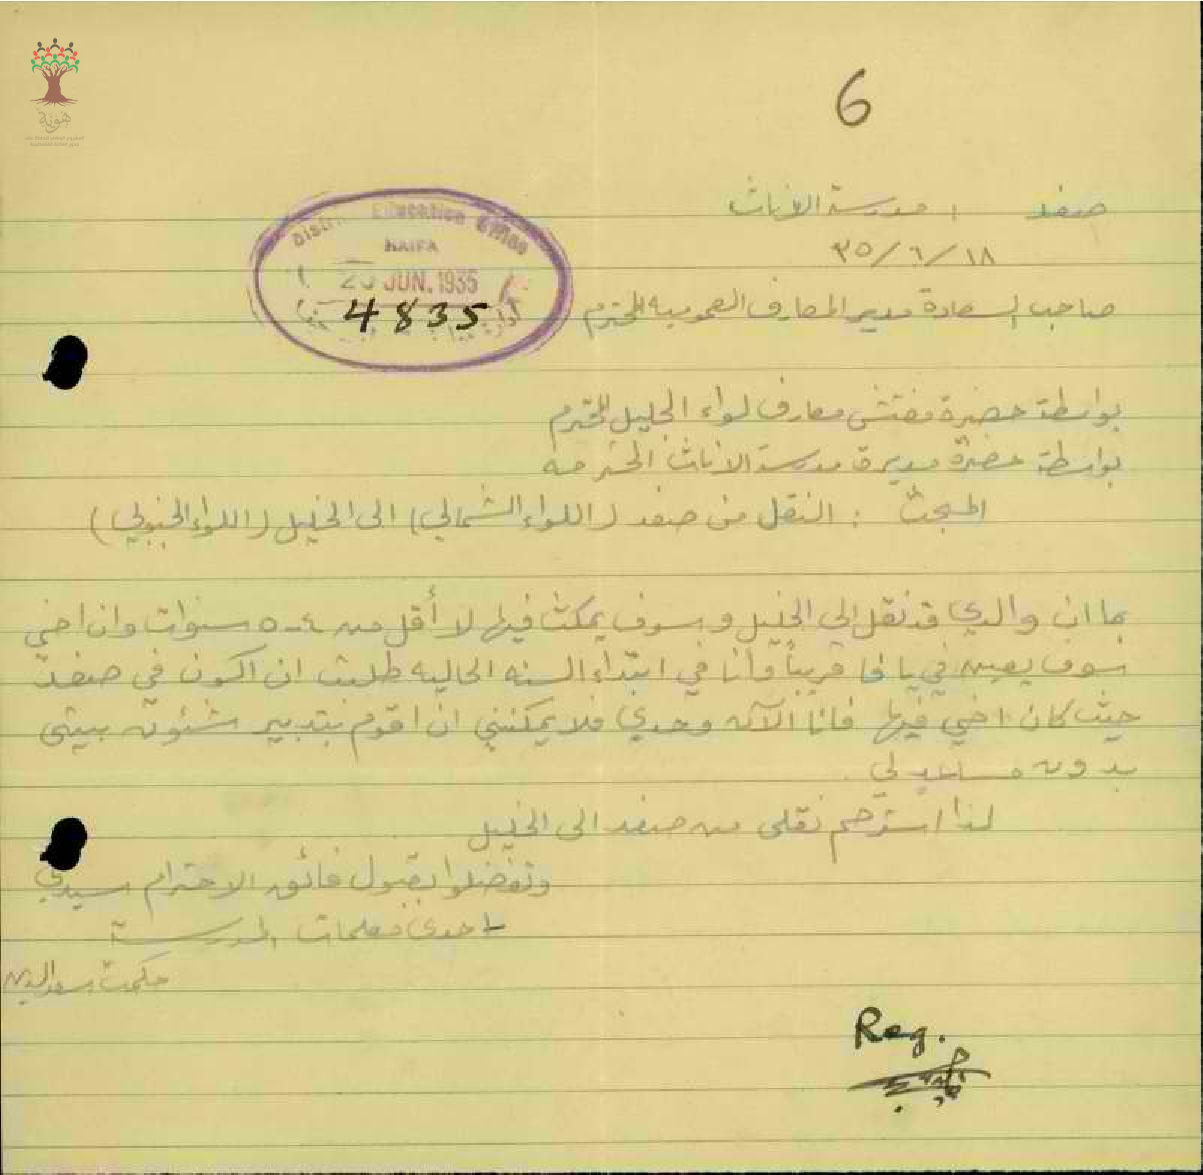 6
صفد : مدرسة الاناث
١٨/٦/٣٥
District Education Office
HAIFA
JUN. 1935
4835
صاحب السعادة مدير المعارف العمومية المحترم
بواسطة حضرة مفتش معارف لواء الجليل المحترم
بواسطة حضرة مديرة مدرسة الاناث المحترمه
المبحث : النقل من صفد (اللواء الشمالي) الى الخليل (اللواء الجنوبي)
بما ان والدي قد نقل إلى الخليل وسوف يمكث فيها لا أقل من ٤-٥ سنوات وان اخي
سوف يعين في يافا قريباً وأنا في ابتداء السنه الحاليه طلبت ان اكون في صفد
حيث كان اخي فيها فانا الآن وحدي فلا يمكنني ان اقوم بتدبير شئون بيتي
بدون مساعد لي.
لذا استرحم نقلي من صفد الى الخليل
وتفضلوا بقبول فائق الاحترام سيدي
احدى معلمات المدرسة
حكمت سعد الدين
Reg.
هوية